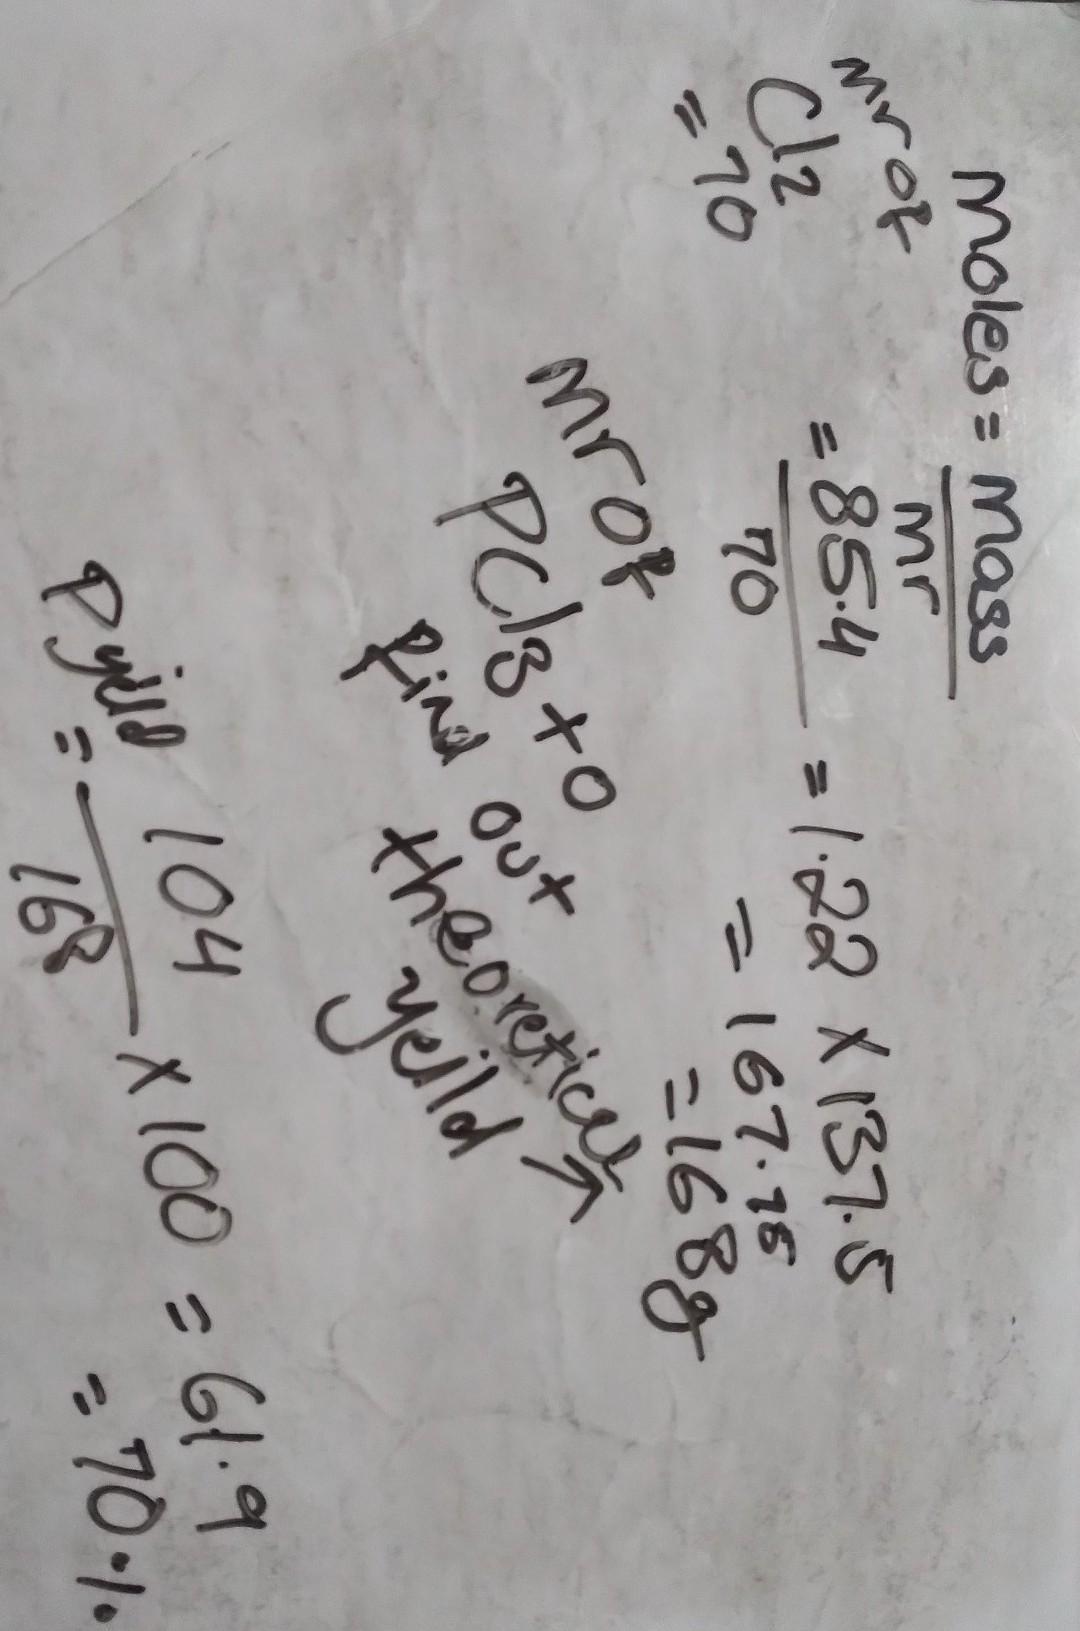 moles = mass
mr
mr of
Cl2
= 70
= 85.4
70
= 1.22 x 137.5
= 167.75
= 168g
mr of
PCl3 to
find out
theoretical
yeild →
P yeild
= 104
168
x 100 = 61.9
= 70%